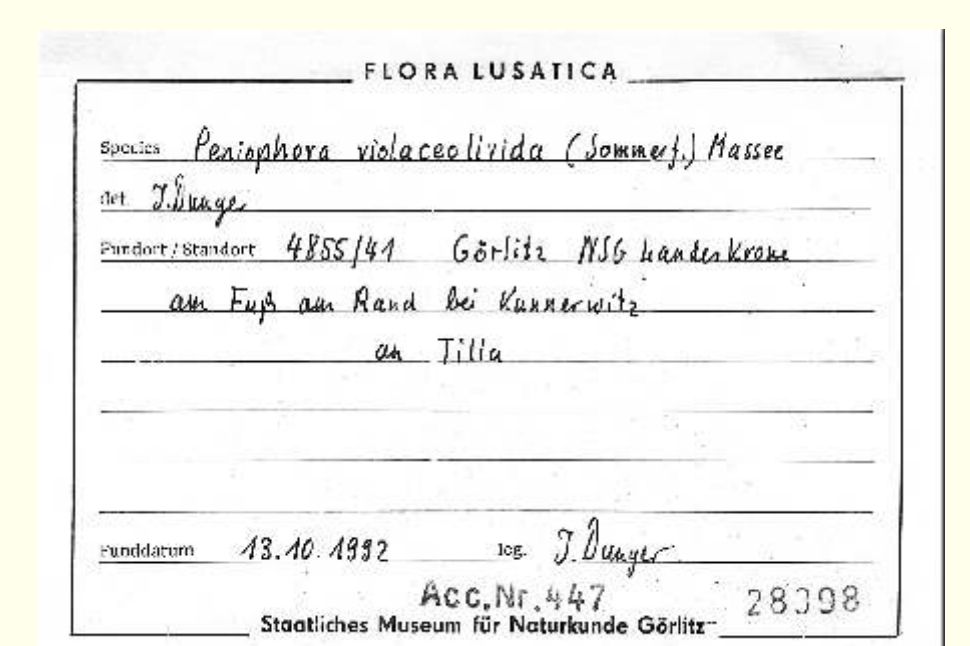 FLORA LUSATICA
Species Peniophora violaceolivida (Sommerf.) Massee
det. I. Dunger
Fundort / Standort 4855/41 Görlitz NSG Landeskrone
am Fuß am Rand bei Kunnerwitz
an Tilia
Funddatum 13.10.1992 leg. I. Dunger
Acc.Nr.447
Staatliches Museum für Naturkunde Görlitz